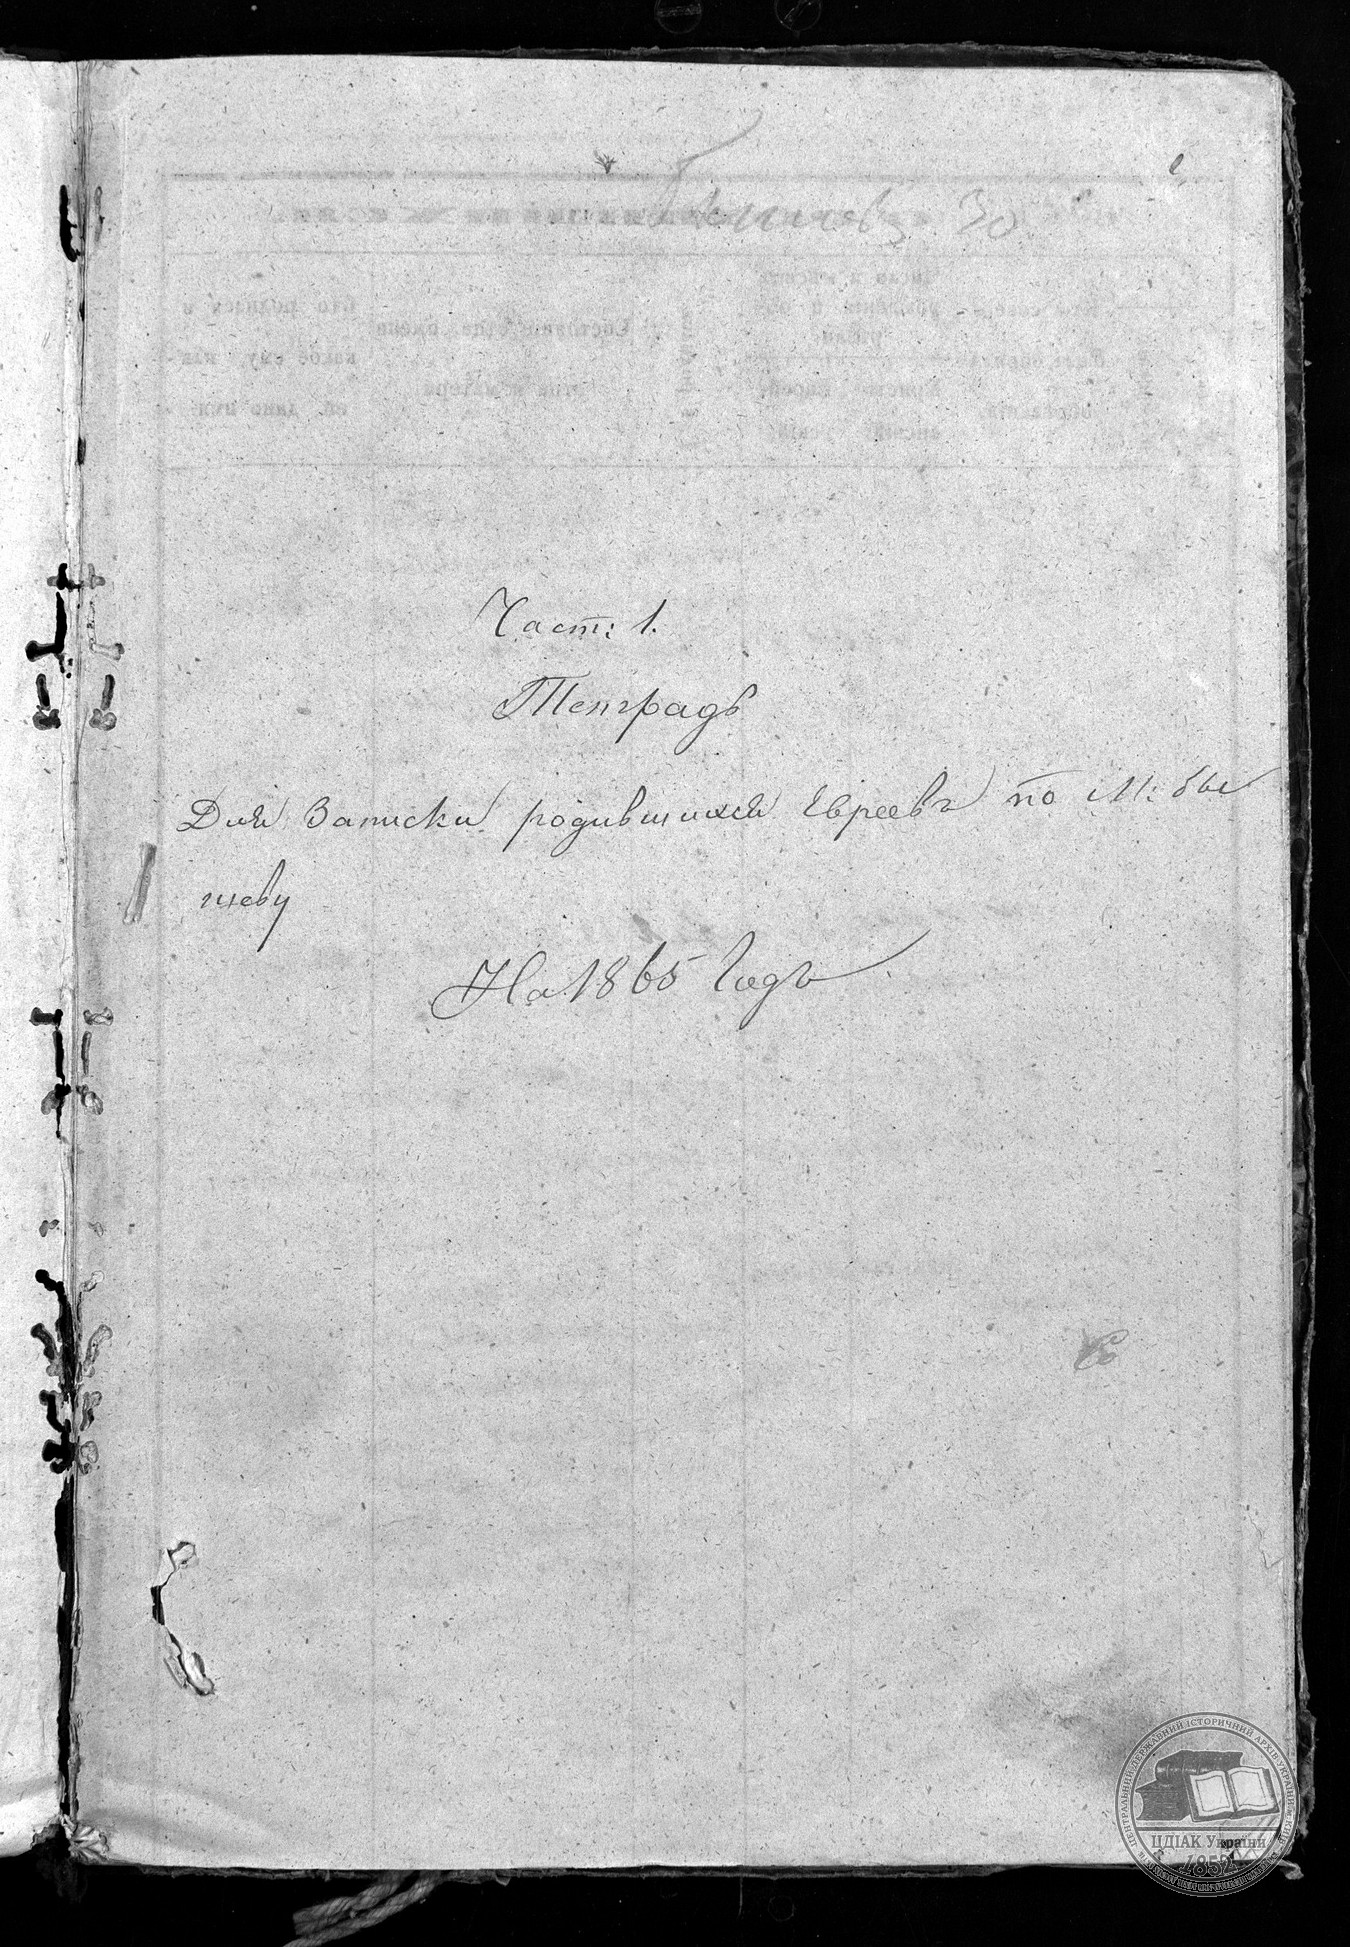 30
Част: 1.
Тетрадь
Для Записки родившихся Евреевъ по М: Бы
шеву
На 1865 Годъ
ЦЕНТРАЛЬНИЙ ДЕРЖАВНИЙ ІСТОРИЧНИЙ АРХІВ УКРАЇНИ, м. КИЇВ
ЦДІАК України
1852